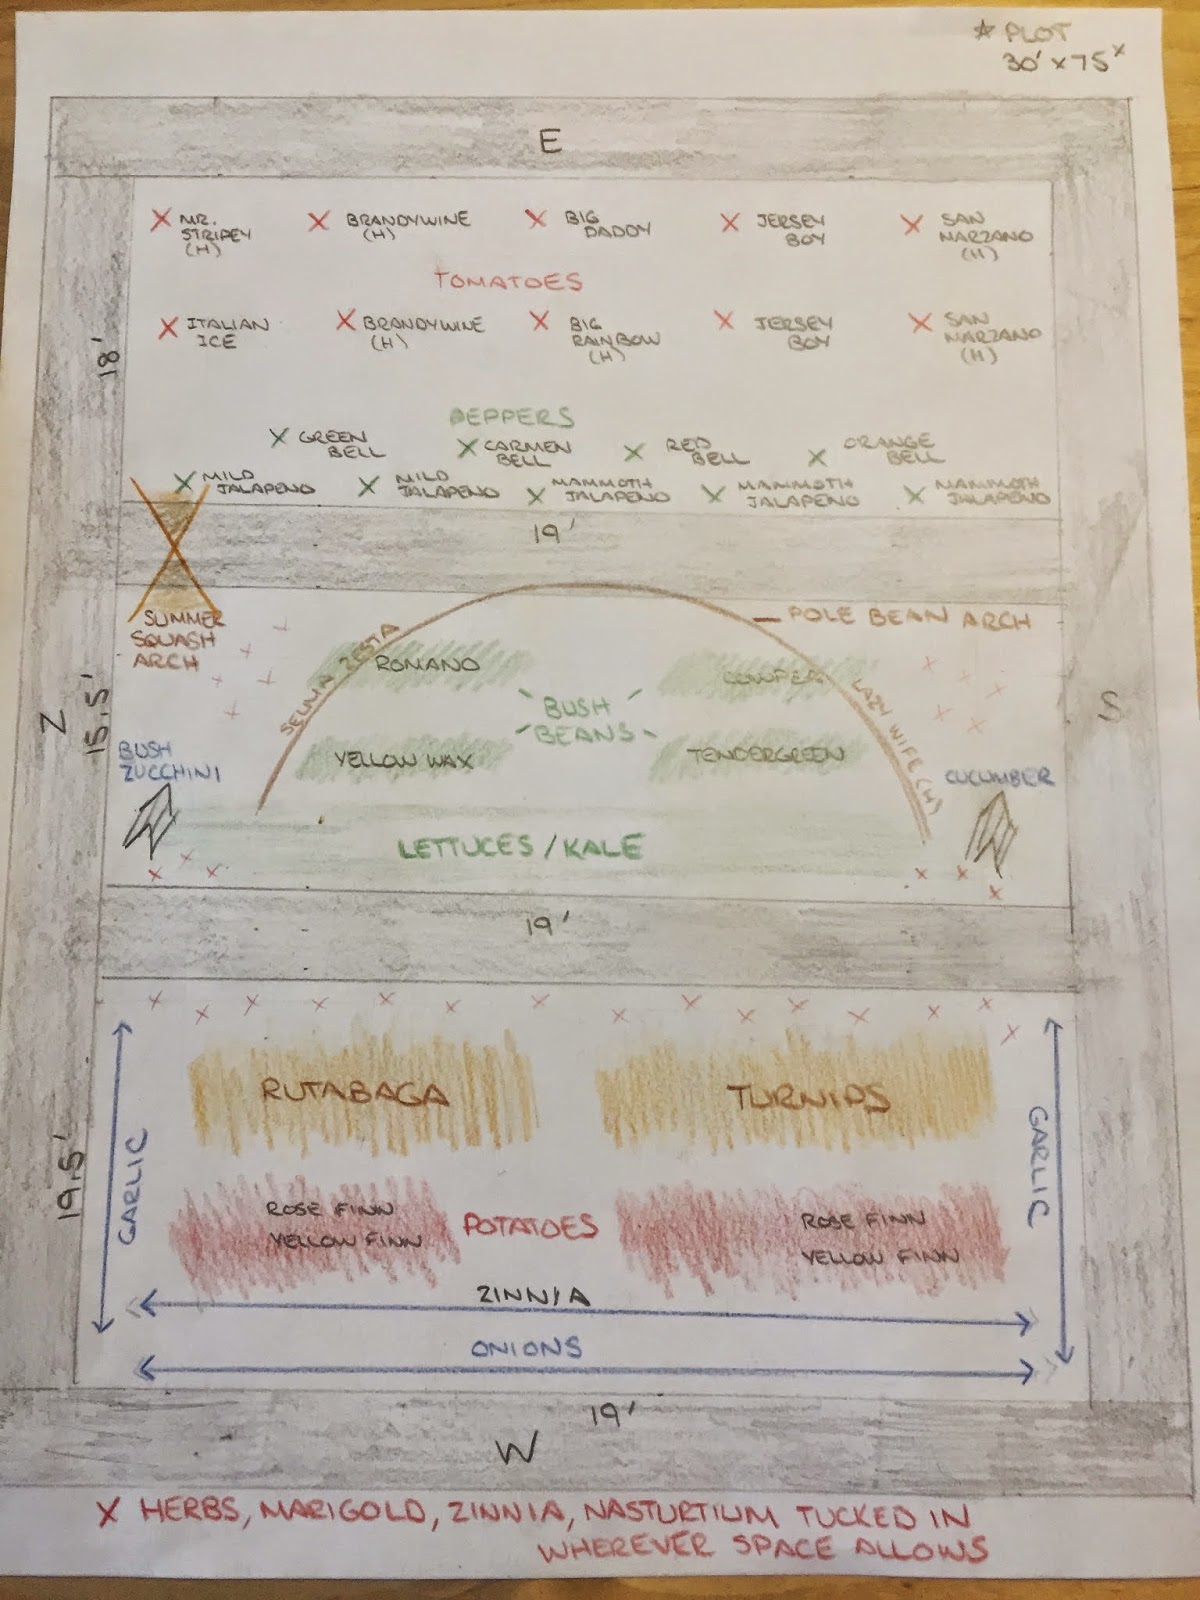 * PLOT
30' x 75'
E
MR.
STRIPEY
(H)
BRANDYWINE
(H)
BIG
DADDY
JERSEY
BOY
SAN
MARZANO
(H)
TOMATOES
ITALIAN
ICE
BRANDYWINE
(H)
BIG
RAINBOW
(H)
JERSEY
BOY
SAN
MARZANO
(H)
18'
PEPPERS
GREEN
BELL
CARMEN
BELL
RED
BELL
ORANGE
BELL
MILD
JALAPENO
MILD
JALAPENO
MAMMOTH
JALAPENO
MAMMOTH
JALAPENO
MAMMOTH
JALAPENO
19'
SUMMER
SQUASH
ARCH
POLE BEAN ARCH
SELMA ZESTA
ROMANO
LAZY WIFE (H)
BUSH
BEANS
YELLOW WAX
TENDERGREEN
N
15.5'
S
BUSH
ZUCCHINI
CUCUMBER
LETTUCES / KALE
19'
RUTABAGA
TURNIPS
GARLIC
GARLIC
19.5'
ROSE FINN
YELLOW FINN
POTATOES
ROSE FINN
YELLOW FINN
ZINNIA
ONIONS
19'
W
X HERBS, MARIGOLD, ZINNIA, NASTURTIUM TUCKED IN
WHEREVER SPACE ALLOWS